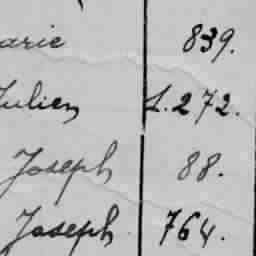 arie 839.
Julien 1.272.
Joseph 88.
Joseph 764.